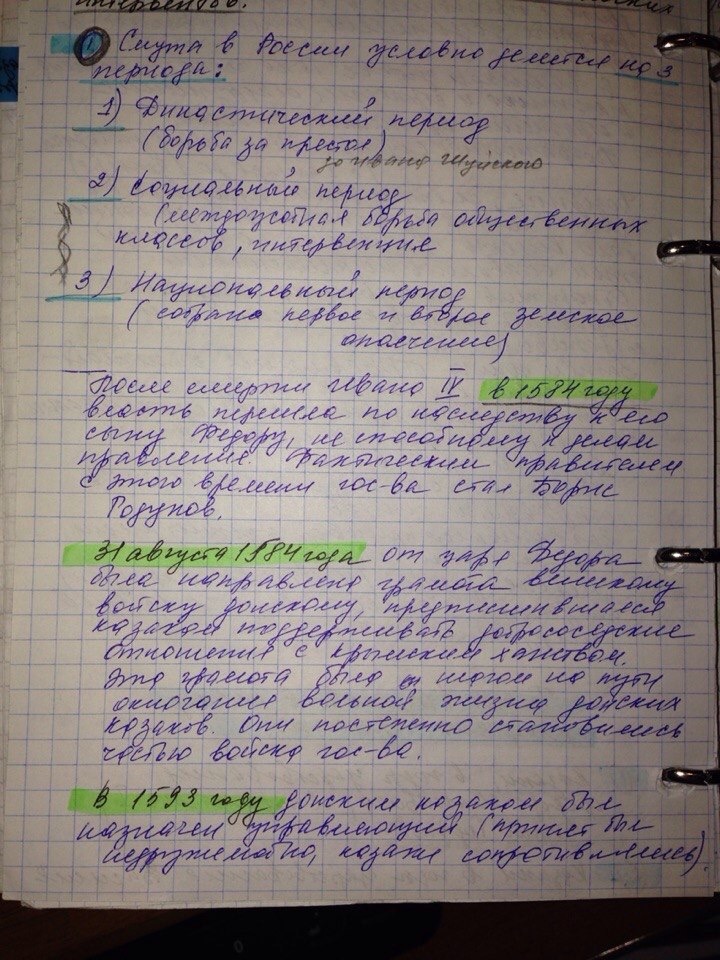 интервентов.
① Смута в России условно делится на 3
периода:
1) Династический период
(борьба за престол)
за Ивана Шуйского
2) Социальный период
(междоусобная борьба общественных
классов, интервенция
3) Национальный период
(собрано первое и второе земское
ополчение)
После смерти Ивана IV в 1584 году
власть перешла по наследству к его
сыну Федору, не способному к делам
правления. Фактическим правителем
с этого времени гос-ва стал Борис
Годунов.
31 августа 1584 года от царя Федора
была направлена грамота великому
войску донскому, предписывавшаяся
казакам поддерживать добрососедские
отношения с крымским ханством.
Эта грамота была шагом на пути
окончания вольной жизни донских
казаков. Они постепенно становились
частью войска гос-ва.
В 1593 году донским казакам был
назначен управляющий (принят был
недружелюбно, казаки сопротивлялись).